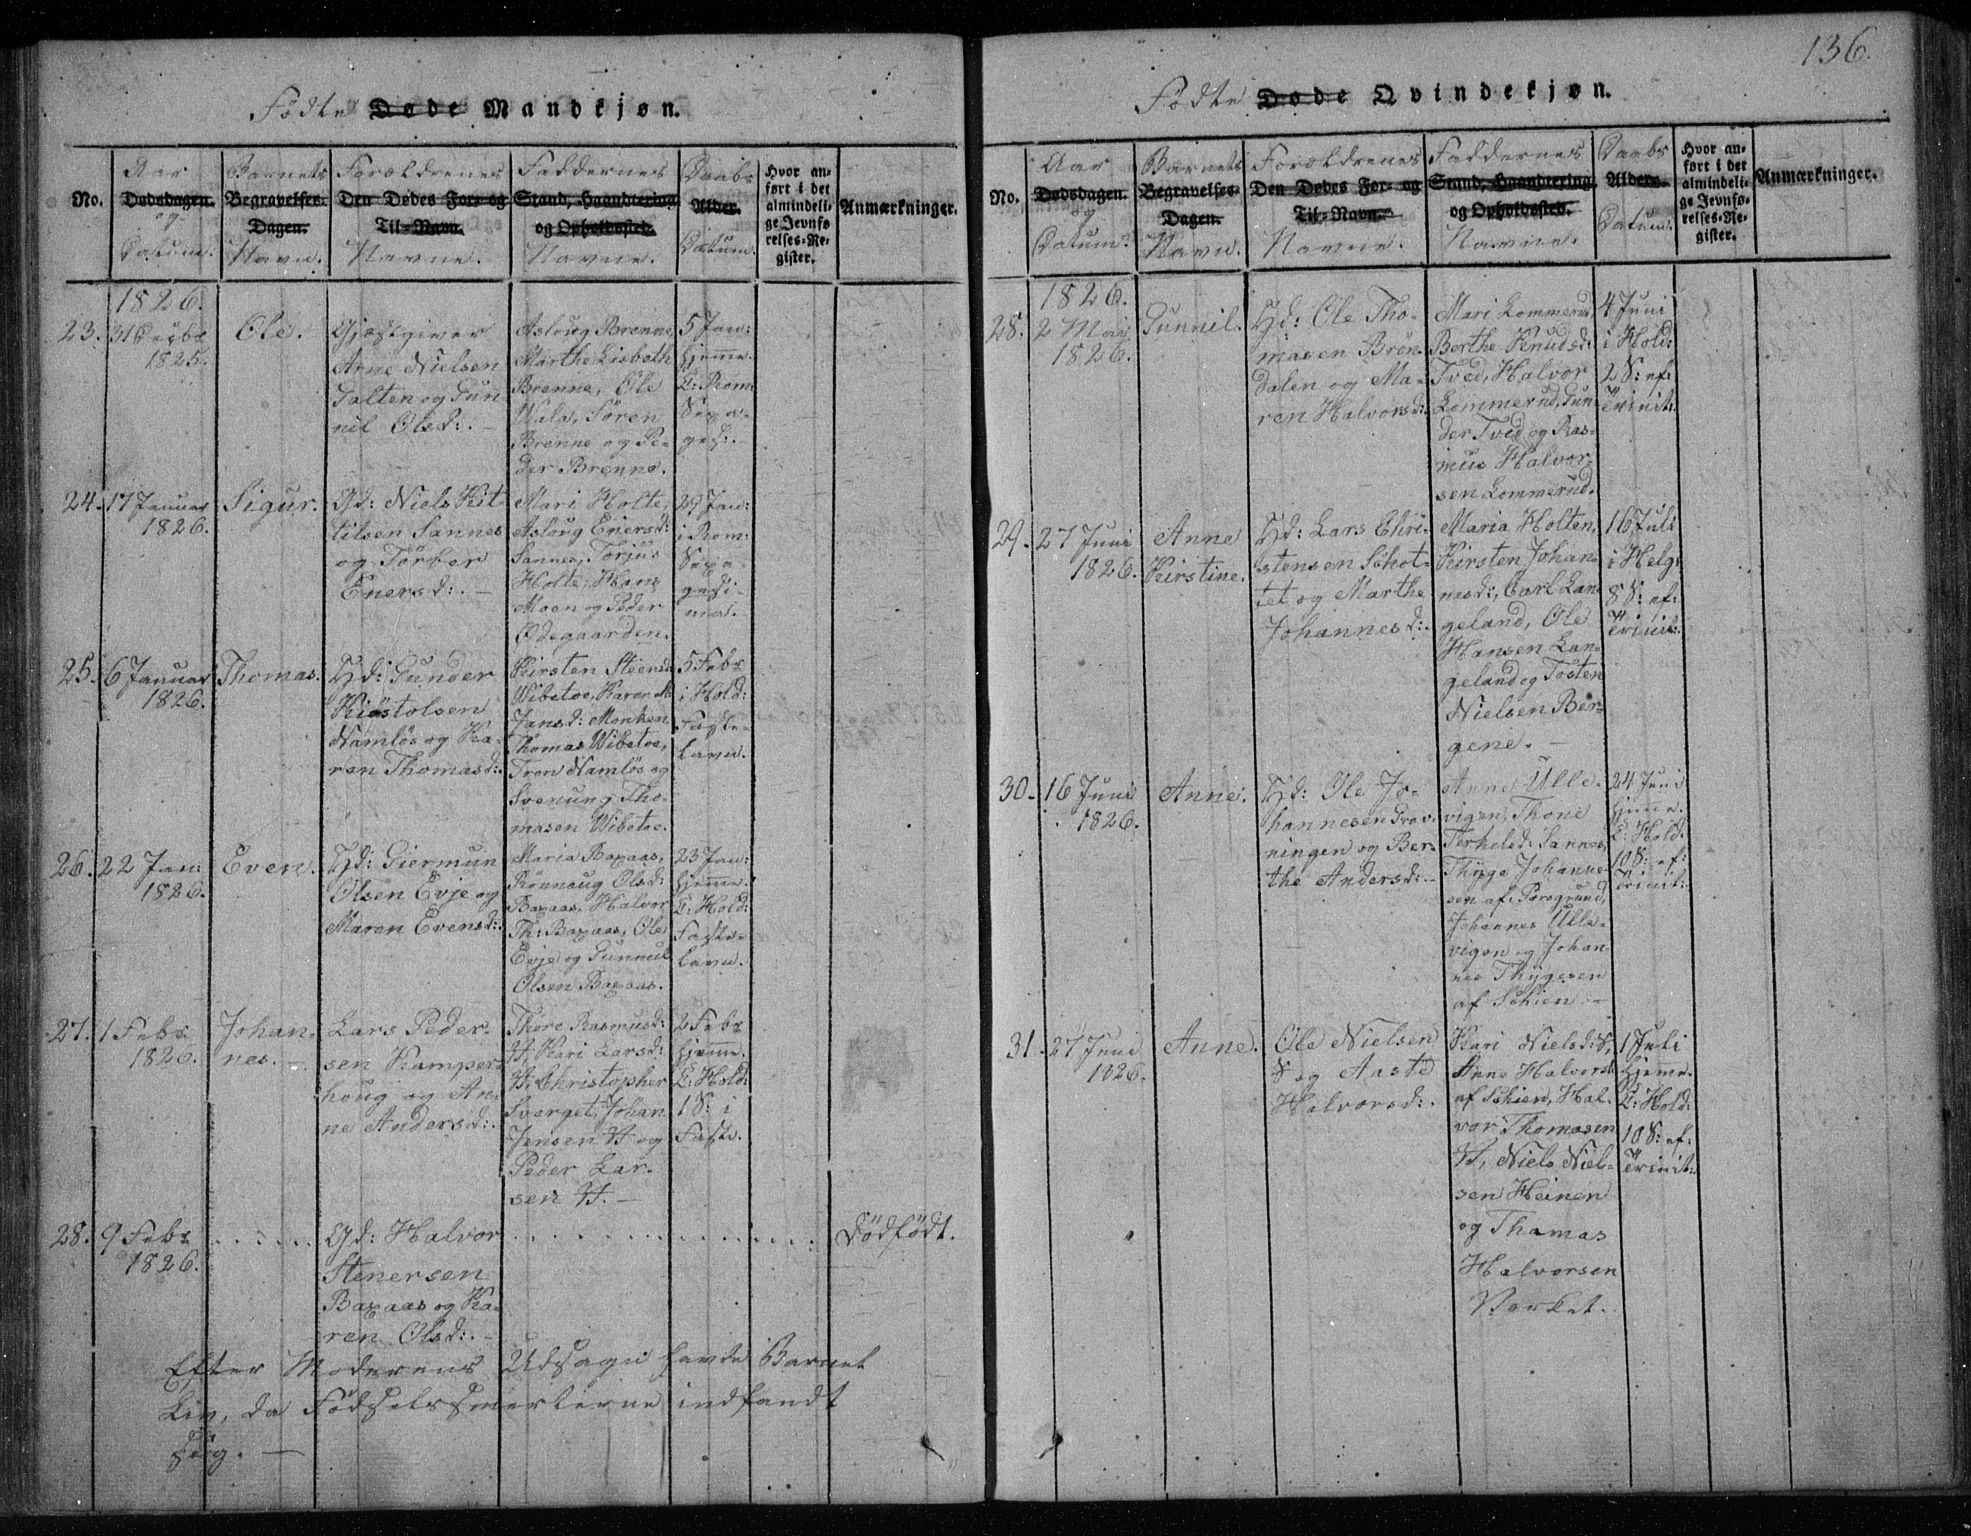 136.
Fødte Døde Mandkjøn.
No.
Aar
Dødsdagen.
og
Datum.
Barnets
Begravelses-
Dagen.
Navn.
Forældrenes
Den Dødes For- og
Til-Navn.
Navne.
Faddernes
Stand, Haandtering
og Opholdssted.
Navne.
Daabs
Alder.
Datum.
Hvor an-
ført i det
almindeli-
ge Jevnfø-
relses-Re-
gister.
Anmærkninger.
1826.
23. 31 Decbr
1825.
Ole.
Gjæstgiver
Arne Nielsen
Salten og Gun
nil Olsd:. -
Asloug Brenne,
Marthe Lisbeth
Brenne, Ole
Wala, Sören
Brenne og Pe-
der Brenne.
5 Jan:
hjemme.
T: Rom:
Sexa-
ges:.
24. 17 Januar
1826.
Sigur.
Gd: Niels Kit
tilsen Sannes
og Torber
Enersd:. -
Mari Holte,
Asloug Enersd:
Sannes, Torjus
Holte, Hans
Moen og Peder
Ödegaarden.
29 Jan:
i Rom:
Sexa-
gesi-
mal.
25. 6 Januar
1826.
Thomas.
Hd: Gunder
Kiöstolsen
Namlös og Ka-
ren Thomasd:.
Kirsten Steensd
Wibetoe, Karen M
Jansd: Monken
Thomas Wibetoe,
Tron Namlös og
Svenung Tho-
masen Wibetoe.
5 Febr
i Hold:
Faste-
lavn.
26. 22 Jan:
1826.
Even.
Hd: Giermun
Olsen Evje og
Maren Evensd:.
Maria Baxaas,
Rönnoug Olsd:
Baxaas, Halvor
Th: Baxaas, Ole
Evje og Gunnul
Olsen Baxaas.
23 Jan:
hjemme.
T: Hold:
Faste-
lavn.
27. 1 Febr
1826.
Johan-
nes. -
Lars Peder-
sen Kamper-
houg og An-
ne Andersd:.
Thore Rasmusd:
H, Kari Larsd:
H, Christopher
Sverget, Johan
Jensen H og
Peder Lar-
sen H. -
2 Febr
hjemme.
T: Hold:
1 S: i
Faste.
28. 9 Febr
1826.
Gd: Halvor
Stenersen
Baxaas og Ka-
ren Olsd:. -
Dödfödt.
Efter Moderens Udsagn havde Barnet
Liv, da Födselssmerterne indfandt
sig. -
Fødte Døde Qvindekjøn.
No.
Aar
Dødsdagen.
og
Datum.
Barnets
Begravelses-
Dagen.
Navn.
Forældrenes
Den Dødes For- og
Til-Navn.
Navne.
Faddernes
Stand, Haandtering
og Opholdssted.
Navne.
Daabs
Alder.
Datum.
Hvor an-
ført i det
almindeli-
ge Jevnfø-
relses-Re-
gister.
Anmærkninger.
1826.
28. 2 Mai
1826.
Gunnil.
Hd: Ole Tho-
masen Brön-
dalen og Ma-
ren Halvorsd:.
Mari Lommerud
Berthe Knudsd:
Tved, Halvor
Lommerud, Gun-
der Tved og Ras-
mus Halvor-
sen Lommerud.
4 Juni
i Hold:
2 S: ef:
Trinit:.
29. 27 Juni
1826.
Anne
Kirstine.
Hd: Lars Chri-
stensen Schot-
tet og Marthe
Johannesd:.
Maria Holten,
Kirsten Johan-
nesd:, Carl Lan-
geland, Ole
Hansen Lan-
geland og Tosten
Nielsen Ber-
gene. -
16 Juli
i Helg:
8 S: ef:
Trinit:.
30. 16 Juni
1826.
Anne.
Hd: Ole Jo-
hannesen Grav-
ningen og Ber-
the Andersd:. -
Anne Ulle-
vigen, Thone
Terkelsd: Sannes,
Thyge Johanne-
sen af Porsgrund,
Johannes Ulle-
vigen og Johan-
nes Thygesen
af Schien. -
24 Juni
hjeme.
T: Hold.
10 S: ef:
Trinit:.
31. 27 Juni
1826.
Anne.
Ole Nielsen
V og Aaste
Halvorsd:.
Kari Nielsd: V,
Anne Halvorsd
af Schien, Hal-
vor Thomasen
H, Niels Niel-
sen Heinen
og Thomas
Halvorsen
Verket.
1 Juli
hjeme.
T: Hold:
10 S: ef:
Trinit:.